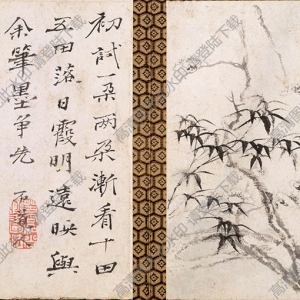 初試一朶兩朶漸看十田
五田落日霞明遠映與
余筆墨爭先